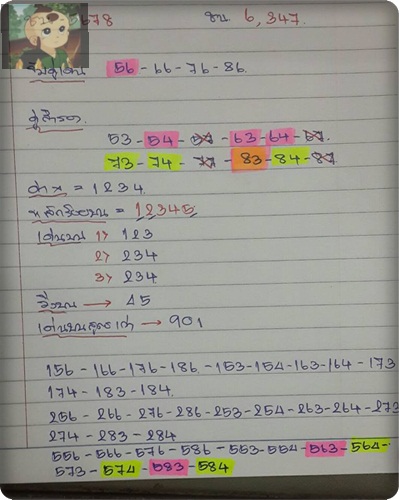 5678 บน 6,347.
56-66-76-86.
53-54-57-63-64-67.
73-74-77-83-84-87.
= 1234.
= 12345
เด่นบน 1) 123
2) 234
3) 234
วิ่งบน → 45
→ 901
156-166-176-186-153-154-163-164-173
174-183-184.
256-266-276-286-253-254-263-264-273
274-283-284
556-566-576-586-553-554-563-564-
573-574-583-584